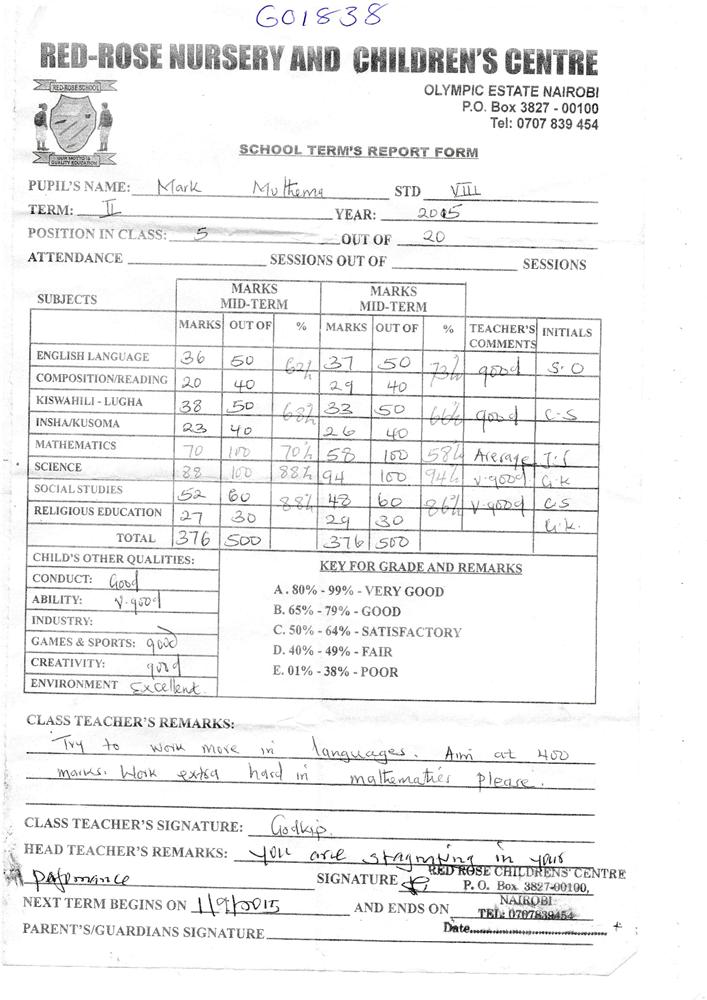 G01838
RED-ROSE NURSERY AND CHILDREN'S CENTRE
RED-ROSE SCHOOL
OUR MOTTO IS
QUALITY EDUCATION
OLYMPIC ESTATE NAIROBI
P.O. Box 3827 - 00100
Tel: 0707 839 454
SCHOOL TERM'S REPORT FORM
PUPIL'S NAME: Mark Muthema STD VIII
TERM: II YEAR: 2015
POSITION IN CLASS: 5 OUT OF 20
ATTENDANCE SESSIONS OUT OF SESSIONS
SUBJECTS MARKS MID-TERM MARKS MID-TERM
MARKS OUT OF % MARKS OUT OF % TEACHER'S COMMENTS INITIALS
ENGLISH LANGUAGE 36 50 62% 37 50 73% good S.O
COMPOSITION/READING 20 40 29 40
KISWAHILI - LUGHA 38 50 68% 33 50 66% good C-S
INSHA/KUSOMA 23 40 26 40
MATHEMATICS 70 100 70% 58 100 58% Average J.S
SCIENCE 88 100 88% 94 100 94% v.good G.K
SOCIAL STUDIES 52 60 88% 48 60 86% v.good CS
RELIGIOUS EDUCATION 27 30 29 30 G.K.
TOTAL 376 500 376 500
CHILD'S OTHER QUALITIES:
CONDUCT: Good
ABILITY: V.good
INDUSTRY:
GAMES & SPORTS: good
CREATIVITY: good
ENVIRONMENT Excellent.
KEY FOR GRADE AND REMARKS
A. 80% - 99% - VERY GOOD
B. 65% - 79% - GOOD
C. 50% - 64% - SATISFACTORY
D. 40% - 49% - FAIR
E. 01% - 38% - POOR
CLASS TEACHER'S REMARKS:
Try to work more in languages. Aim at 400
marks. Work extra hard in mathematics please.
CLASS TEACHER'S SIGNATURE: Godkip.
HEAD TEACHER'S REMARKS: you are stagnating in your
performance SIGNATURE
RED ROSE CHILDRENS' CENTRE
P. O. Box 3827-00100,
NAIROBI
TEL: 0707839454
Date
NEXT TERM BEGINS ON 1/9/2015 AND ENDS ON
PARENT'S/GUARDIANS SIGNATURE